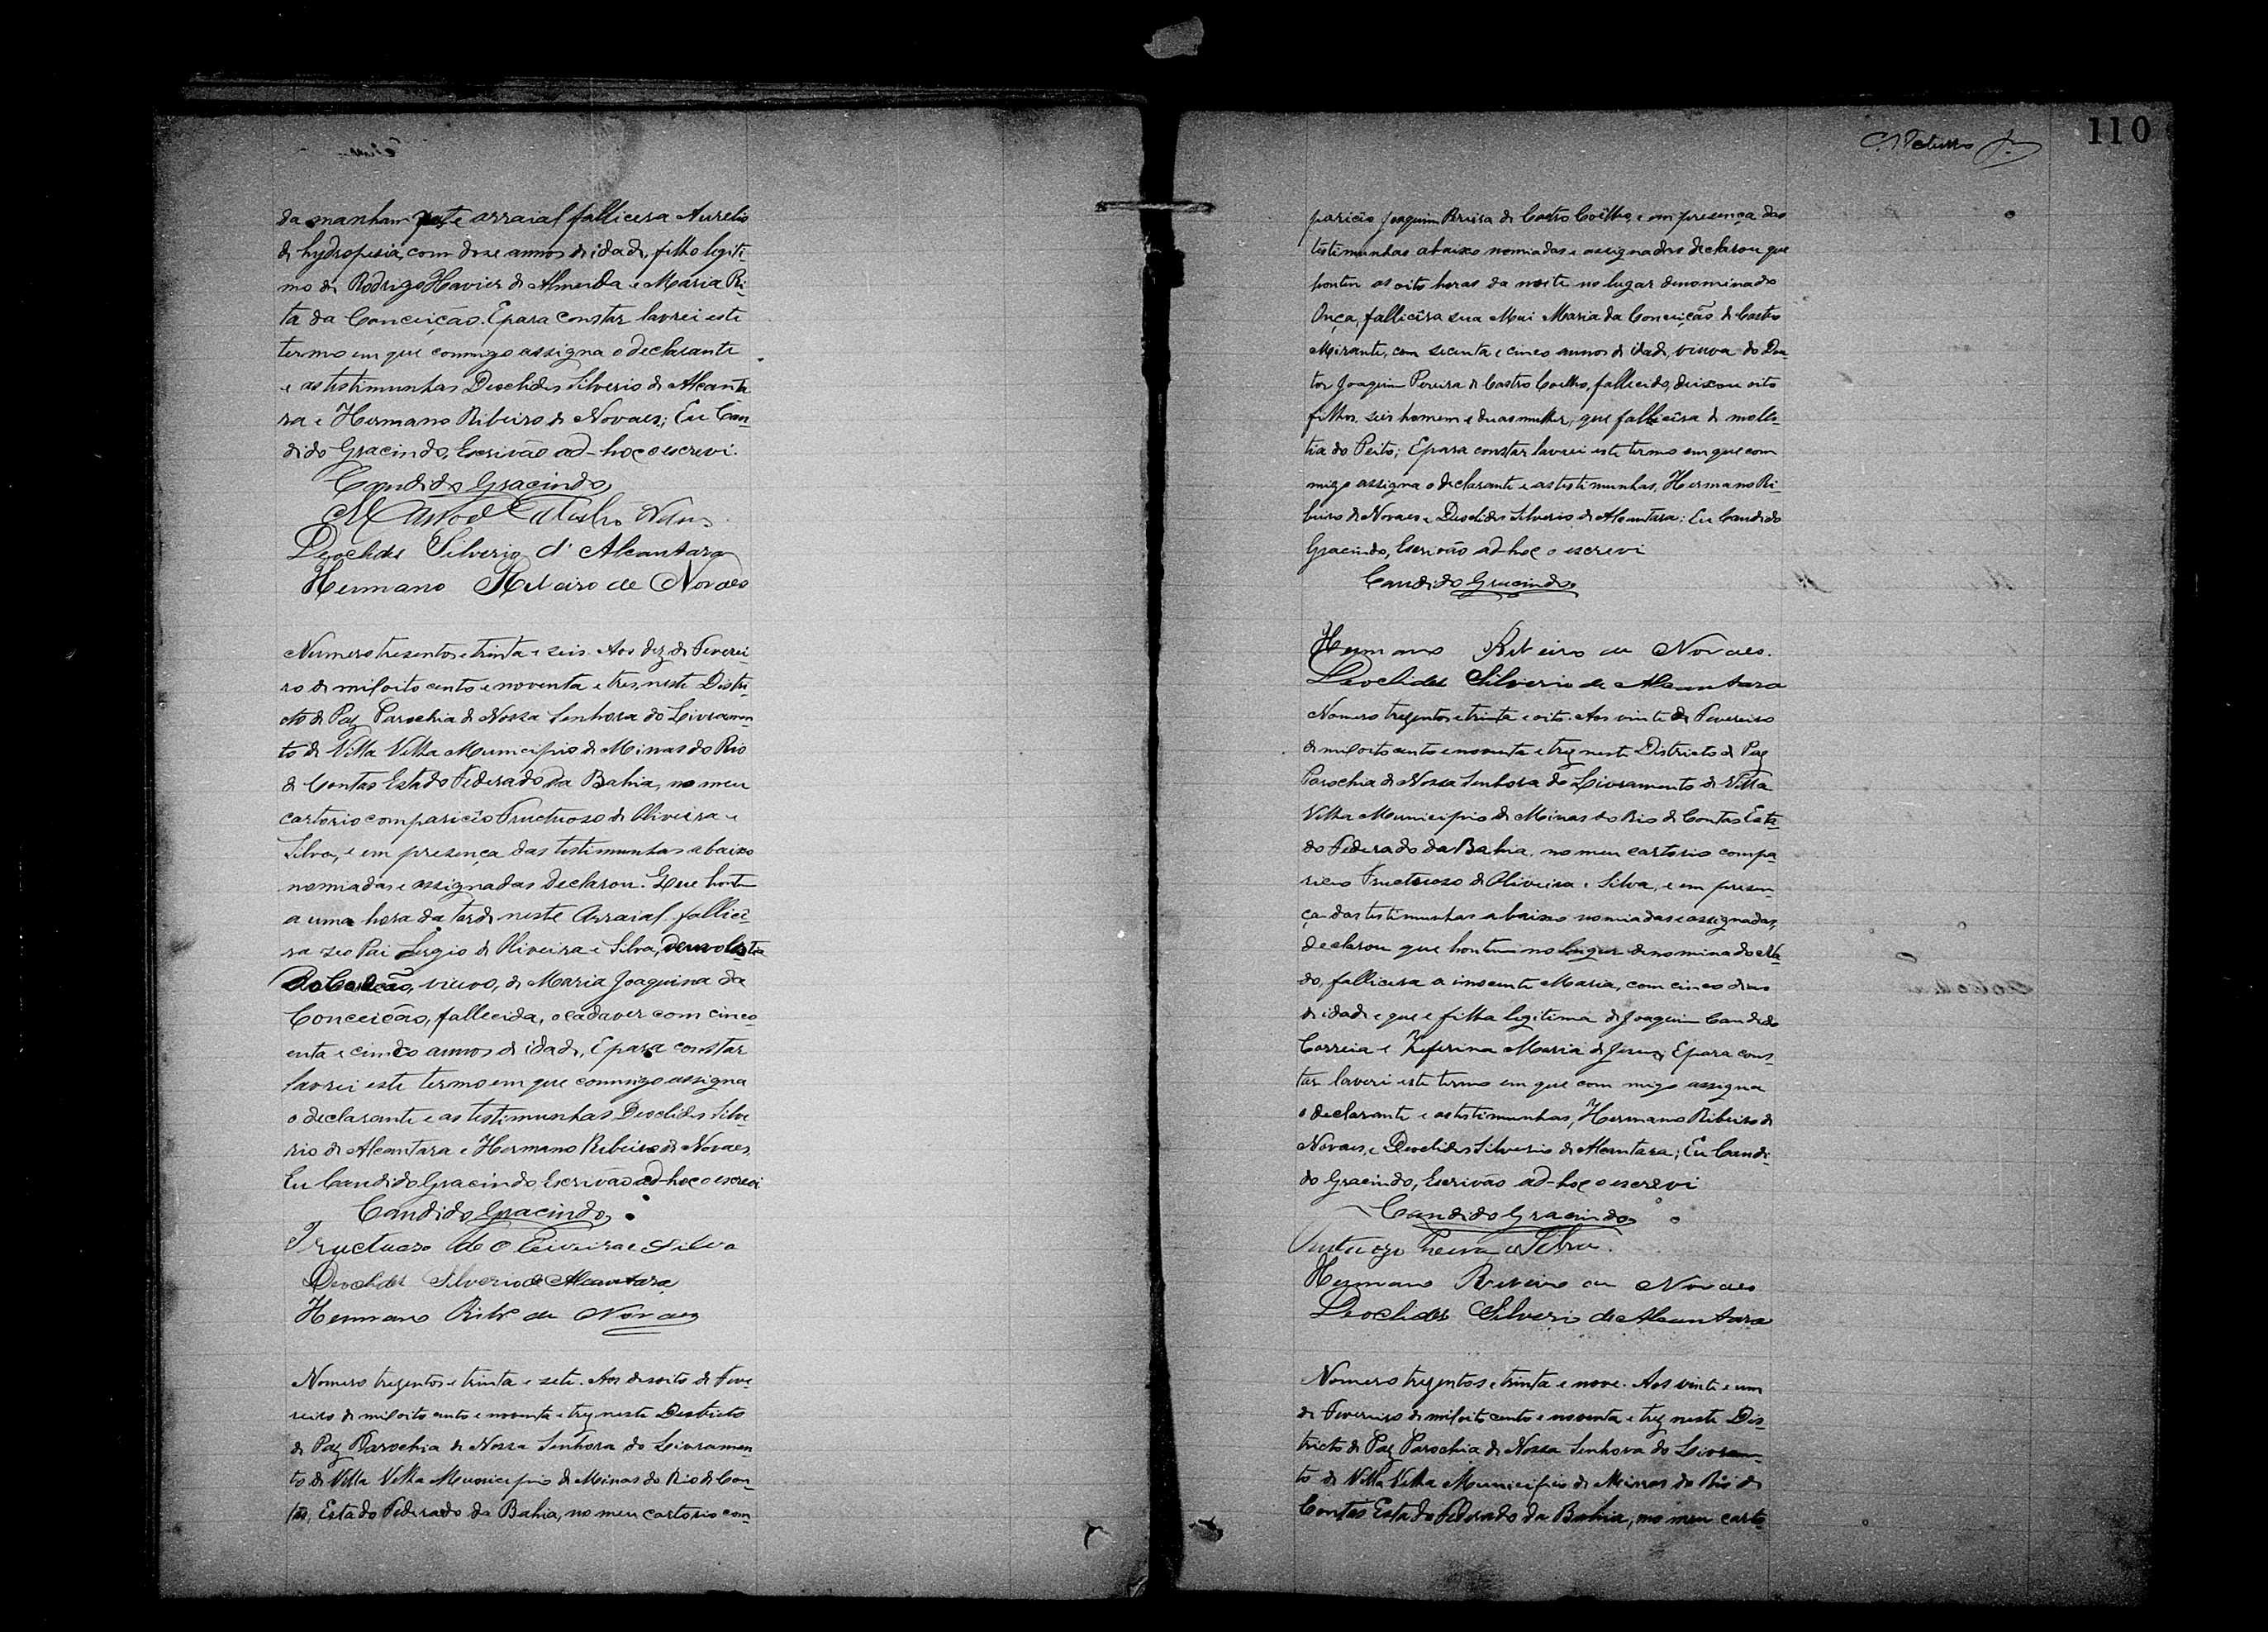 da manham neste arraial fallicera Aurelio
de hydropesia, com doze annos de idade, filho legiti-
mo de Rodrigo Xavier de Almeida e Maria Ri-
ta da Conceição. E para constar lavrei este
termo em que commigo assigna o declarante
e as testimunhas Deoclides Silverio de Alcanta
ra e Hermano Ribeiro de Novaes; Eu Can-
dido Gracindo, Escrivão ad-hoc o escrevi.
Candido Gracindo
Deoclides Silverio d'Alcantara
Hermano Ribeiro de Novaes
Numero tresentos e trinta e seis. Aos dez de Feverei-
ro de mil oito cento e noventa e tres, neste Distri-
cto de Paz Parochia de Nossa Senhora do Livramen-
to de Villa Velha Municipio de Minas do Rio
de Contas Estado Federado da Bahia, no meu
cartorio comparicêo Fructuoso de Oliveira e
Silva, e em presença das testimunhas abaixo
nomiadas e assignadas declarou. Que hontem
a uma hora da tarde neste Arraial fallicê-
ra seo Pai Sergio de Oliveira e Silva, de molestia
do Coração, viuvo, de Maria Joaquina da
Conceição, fallecida, o cadaver com cinco-
enta e cinco annos de idade, E para constar
lavrei este termo em que commigo assigna
o declarante e as testimunhas Deoclides Silve-
rio de Alcantara e Hermano Ribeiro de Novaes,
Eu Candido Gracindo, Escrivão ad-hoc o escrevi
Candido Gracindo
Fructuoso de Oliveira e Silva
Deoclides Silverio de Alcantara
Hermano Ribro de Novaes
Nomero trezentos e trinta e sete. Aos desoito de Feve-
reiro de mil oito cento e noventa e trez neste Districto
de Paz Parochia de Nossa Senhora do Livramen-
to de Villa Velha Municipio de Minas do Rio de Con-
tas, Estado Federado da Bahia, no meu cartorio com-
110
paricêo Joaquim de Castro Coêlho, e em presença das
testimunhas abaixo nomiadas e assignadas declarou que
hontem as oito horas da noite no lugar denominado
Onça, fallicêra sua Mai Maria da Conceição de Castro
Mirante, com secenta e cinco annos de idade, viuva do Dou-
tor Joaquim Pereira de Castro Coelho, fallecido, deixou oito
filhos, seis homem e duas mulher, que fallicêra de moles-
tia do Peito; E para constar lavrei este termo em que com
migo assigna o declarante e as testimunhas, Hermano Ri-
beiro de Novaes e Deoclides Silverio de Alcantara: Eu Candido
Gracindo, Escrivão ad-hoc o escrevi
Candido Gracindo
Hermano Ribeiro de Novaes.
Deoclides Silverio de Alcantara
Nomero trezentos e trinta e oito. Aos vinte de Fevereiro
de mil oito cento e noventa e trez neste Districto de Paz
Parochia de Nossa Senhora do Livramento de Villa
Velha Municipio de Minas do Rio de Contas Esta-
do Federado da Bahia, no meu cartorio compa-
riceo Fructuoso de Oliveira e Silva, e em presen-
ça das testimunhas abaixo nomiadas e assignadas,
declarou que hontem no lugar denominado
do, fallicera a inocente Maria, com cinco dias
de idade e que e filha legitima de Joaquim Candido
Correia e Zeferina Maria de Jesus, E para cons-
tar laveri este termo em que com migo assigna
o declarante e as testimunhas, Hermano Ribeiro de
Novaes, e Deoclides Silverio de Alcantara; Eu Candi-
do Gracindo, Escrivão ad-hoc o escrevi
Candido Gracindo
Hermano Ribeiro de Novaes
Deoclides Silverio de Alcantara
Nomero trezentos e trinta e nove. Aos vinte e um
de Fevereiro de mil oito cento e noventa e trez neste Dis-
tricto de Paz Parochia de Nossa Senhora do Livramen-
to de Villa Velha Municipio de Minas do Rio de
Contas Estado Federado da Bahia, no meu carto-